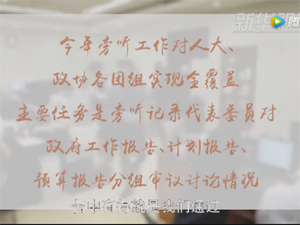 新华
今年旁听工作对人大、
政协各团组实现全覆盖
主要任务是旁听记录代表委员对
政府工作报告、计划报告、
预算报告分组审议讨论情况
我们通过